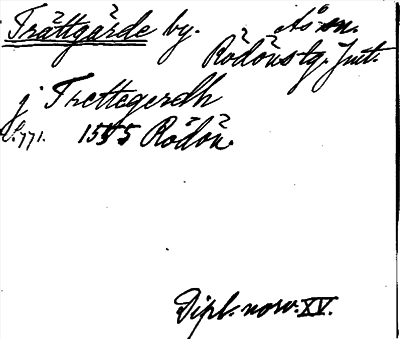 Trättgärde by. Ås sn.
Rödöns tg. Jmt.
j Trettegerdh
S. 771. 1555 Rödön.
Dipl. norv. XV.